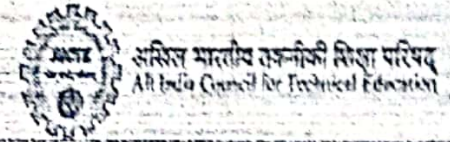 AICTE
अखिल भारतीय तकनीकी शिक्षा परिषद्
All India Council for Technical Education